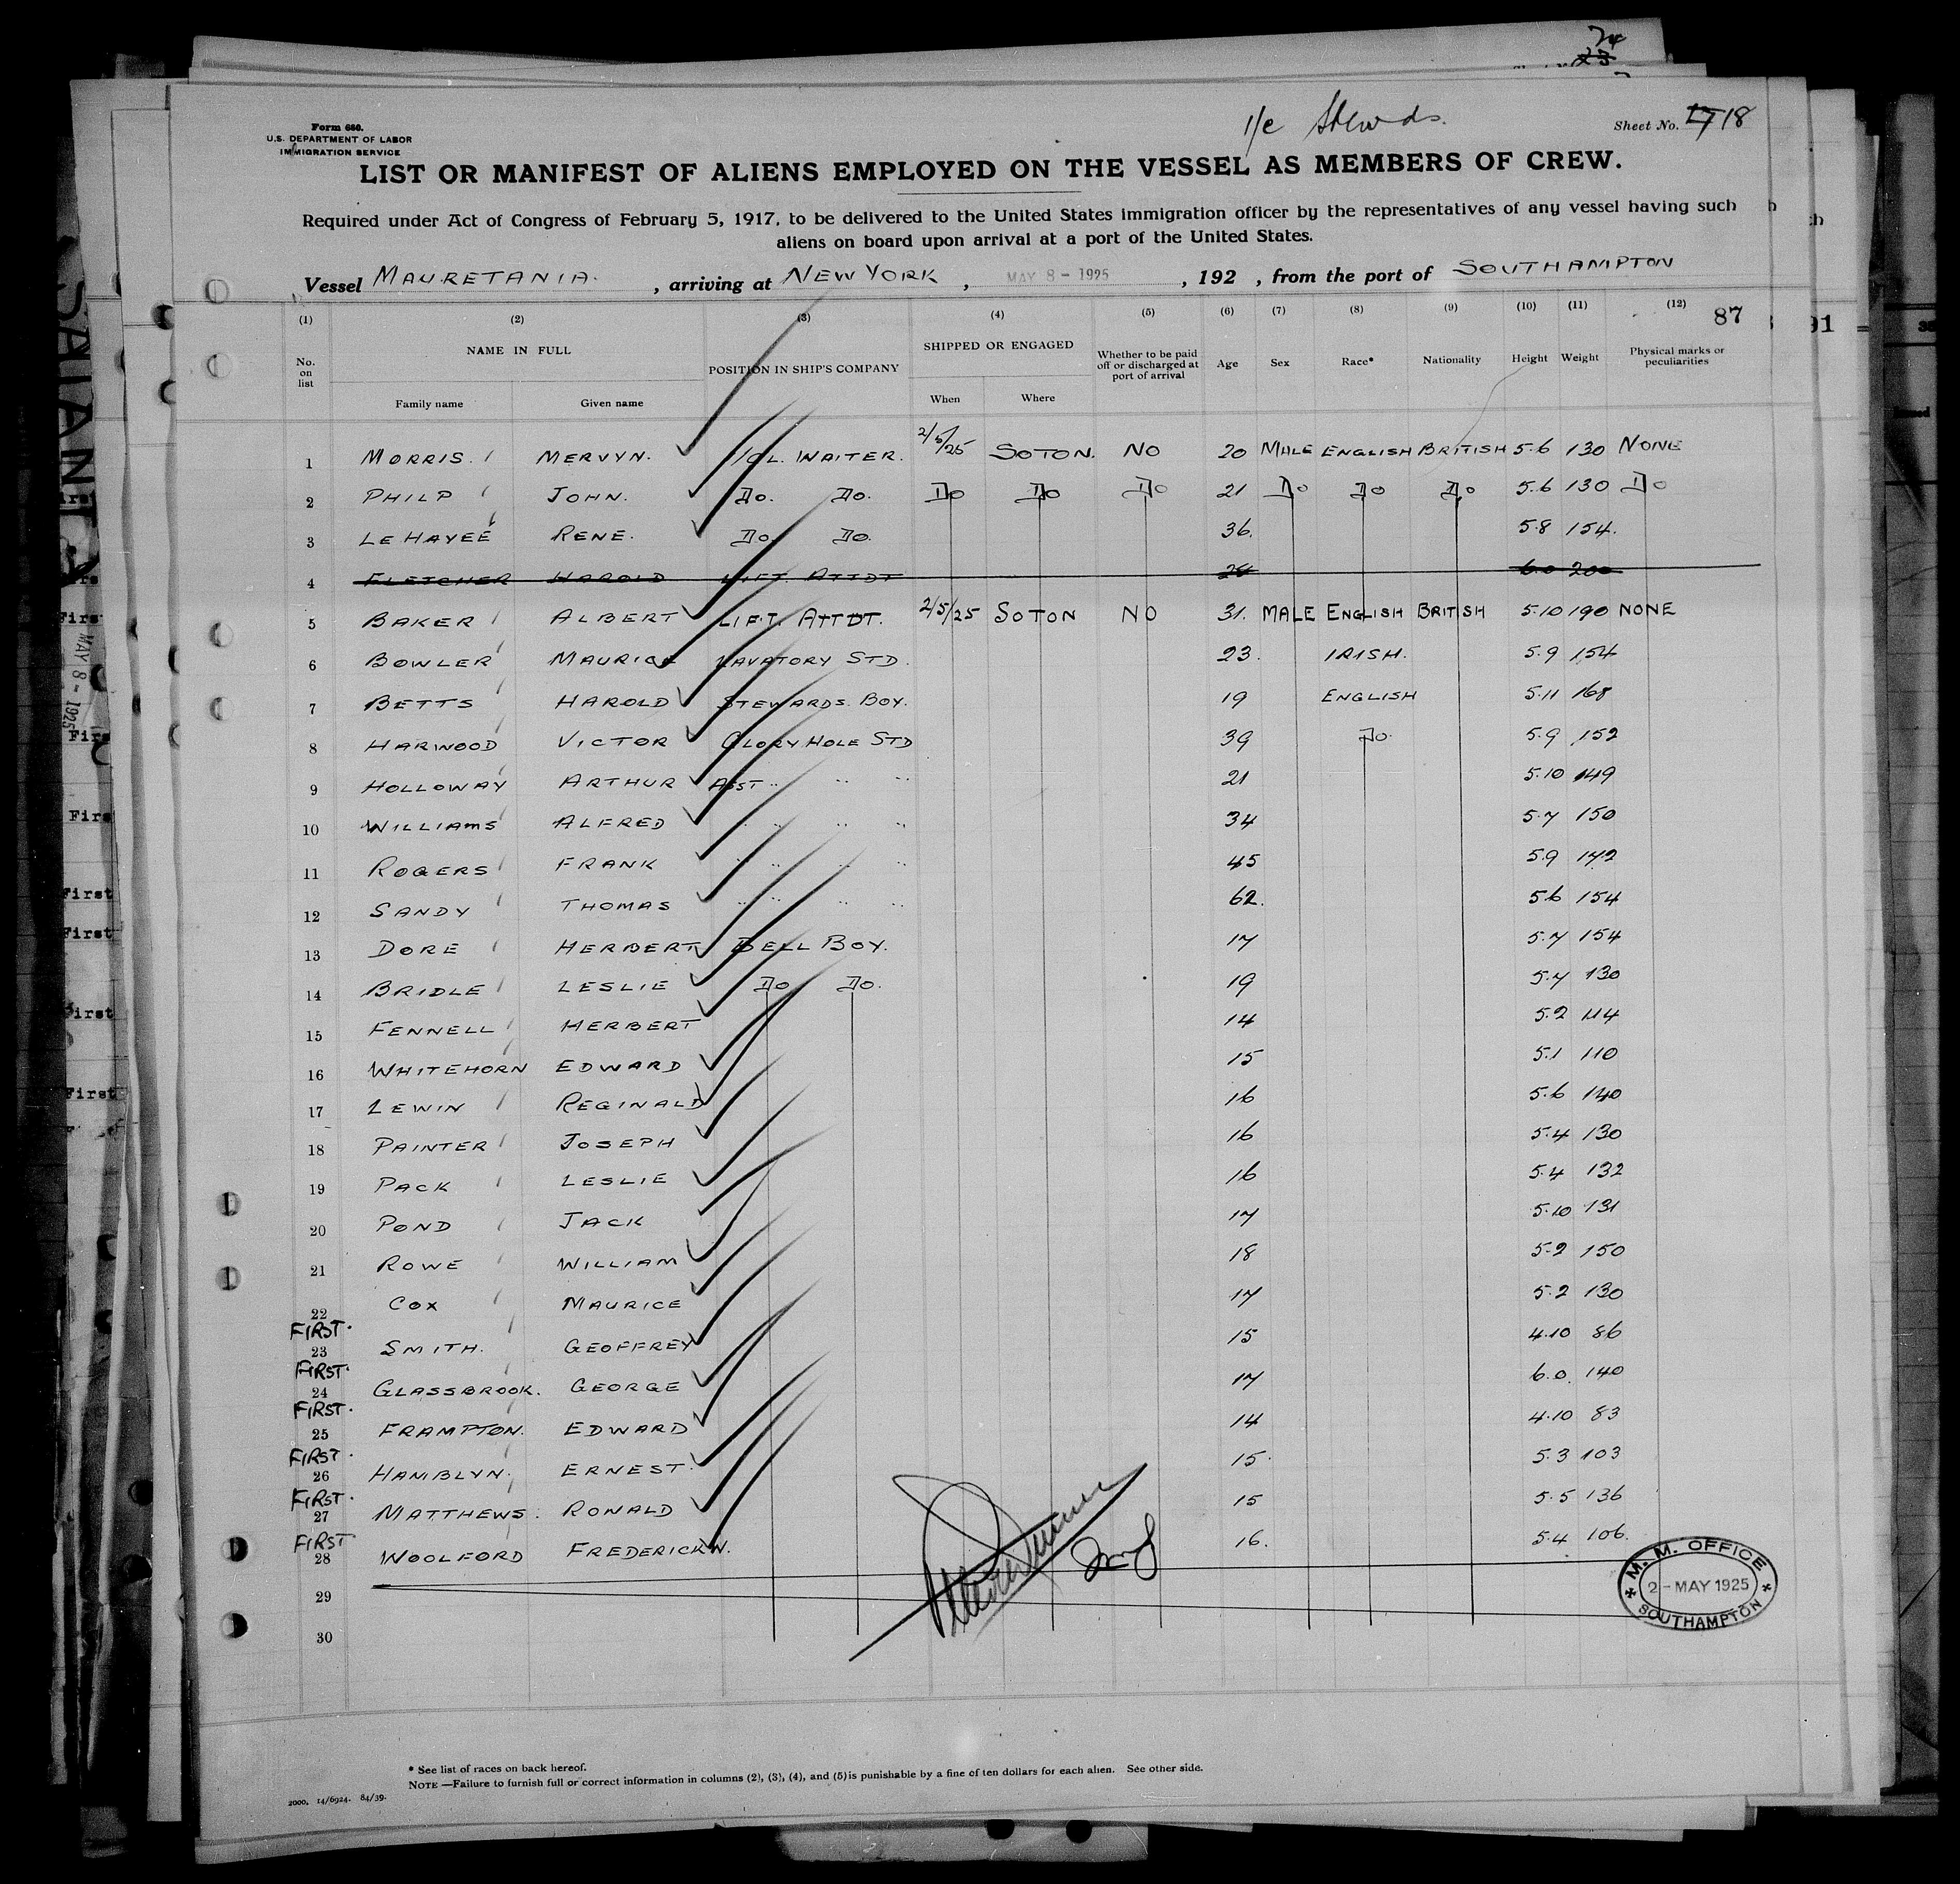 24
23
1/c Stewds.
Form 680.
U.S. DEPARTMENT OF LABOR
IMMIGRATION SERVICE
Sheet No. 17 18
LIST OR MANIFEST OF ALIENS EMPLOYED ON THE VESSEL AS MEMBERS OF CREW.
Required under Act of Congress of February 5, 1917, to be delivered to the United States immigration officer by the representatives of any vessel having such
aliens on board upon arrival at a port of the United States.
Vessel MAURETANIA. , arriving at NEW YORK , MAY 8 - 1925 , 192 , from the port of SOUTHAMPTON
(1) (2) (3) (4) (5) (6) (7) (8) (9) (10) (11) (12) 87 91
No. on list NAME IN FULL Family name Given name POSITION IN SHIP'S COMPANY SHIPPED OR ENGAGED When Where Whether to be paid off or discharged at port of arrival Age Sex Race* Nationality Height Weight Physical marks or peculiarities
1 MORRIS. MERVYN. 1/CL. WAITER. 2/5/25 SOTON. NO 20 MALE ENGLISH BRITISH 5.6 130 NONE
2 PHILP JOHN. Do. Do. Do Do Do 21 Do Do Do 5.6 130 Do
3 LE HAYEE RENE. Do. Do. 36. 5.8 154.
4 FLETCHER HAROLD LIFT. ATTDT 28 6.0 200
5 BAKER ALBERT LIFT. ATTDT. 2/5/25 SOTON NO 31. MALE ENGLISH BRITISH 5.10 190 NONE
6 BOWLER MAURICE LAVATORY STD. 23. IRISH. 5.9 154
7 BETTS HAROLD STEWARDS. BOY. 19 ENGLISH 5.11 168
8 HARWOOD VICTOR GLORY HOLE STD 39 Do. 5.9 152
9 HOLLOWAY ARTHUR ASST " " " 21 5.10 149
10 WILLIAMS ALFRED " " " " 34 5.7 150
11 ROGERS FRANK " " " " 45 5.9 142
12 SANDY THOMAS " " " " 62. 5.6 154
13 DORE HERBERT BELL BOY. 17 5.7 154
14 BRIDLE LESLIE Do Do. 19 5.7 130
15 FENNELL HERBERT 14 5.2 114
16 WHITEHORN EDWARD 15 5.1 110
17 LEWIN REGINALD 16 5.6 140
18 PAINTER JOSEPH 16 5.4 130
19 PACK LESLIE 16 5.4 132
20 POND JACK 17 5.10 131
21 ROWE WILLIAM 18 5.2 150
22 COX MAURICE 17 5.2 130
FIRST. 23 SMITH. GEOFFREY 15 4.10 86
FIRST. 24 GLASSBROOK. GEORGE 17 6.0. 140
FIRST. 25 FRAMPTON. EDWARD 14 4.10 83
FIRST. 26 HAMBLYN. ERNEST. 15. 5.3 103
FIRST. 27 MATTHEWS. RONALD 15 5.5 136
FIRST 28 WOOLFORD FREDERICK W. 16. 5.4 106.
29
30
M. M. OFFICE
2 - MAY 1925
SOUTHAMPTON
* See list of races on back hereof.
NOTE —Failure to furnish full or correct information in columns (2), (3), (4), and (5) is punishable by a fine of ten dollars for each alien. See other side.
2000. 14/6924. 84/39.
First
First
MAY 8 - 1925
First
First
First
First
First
First